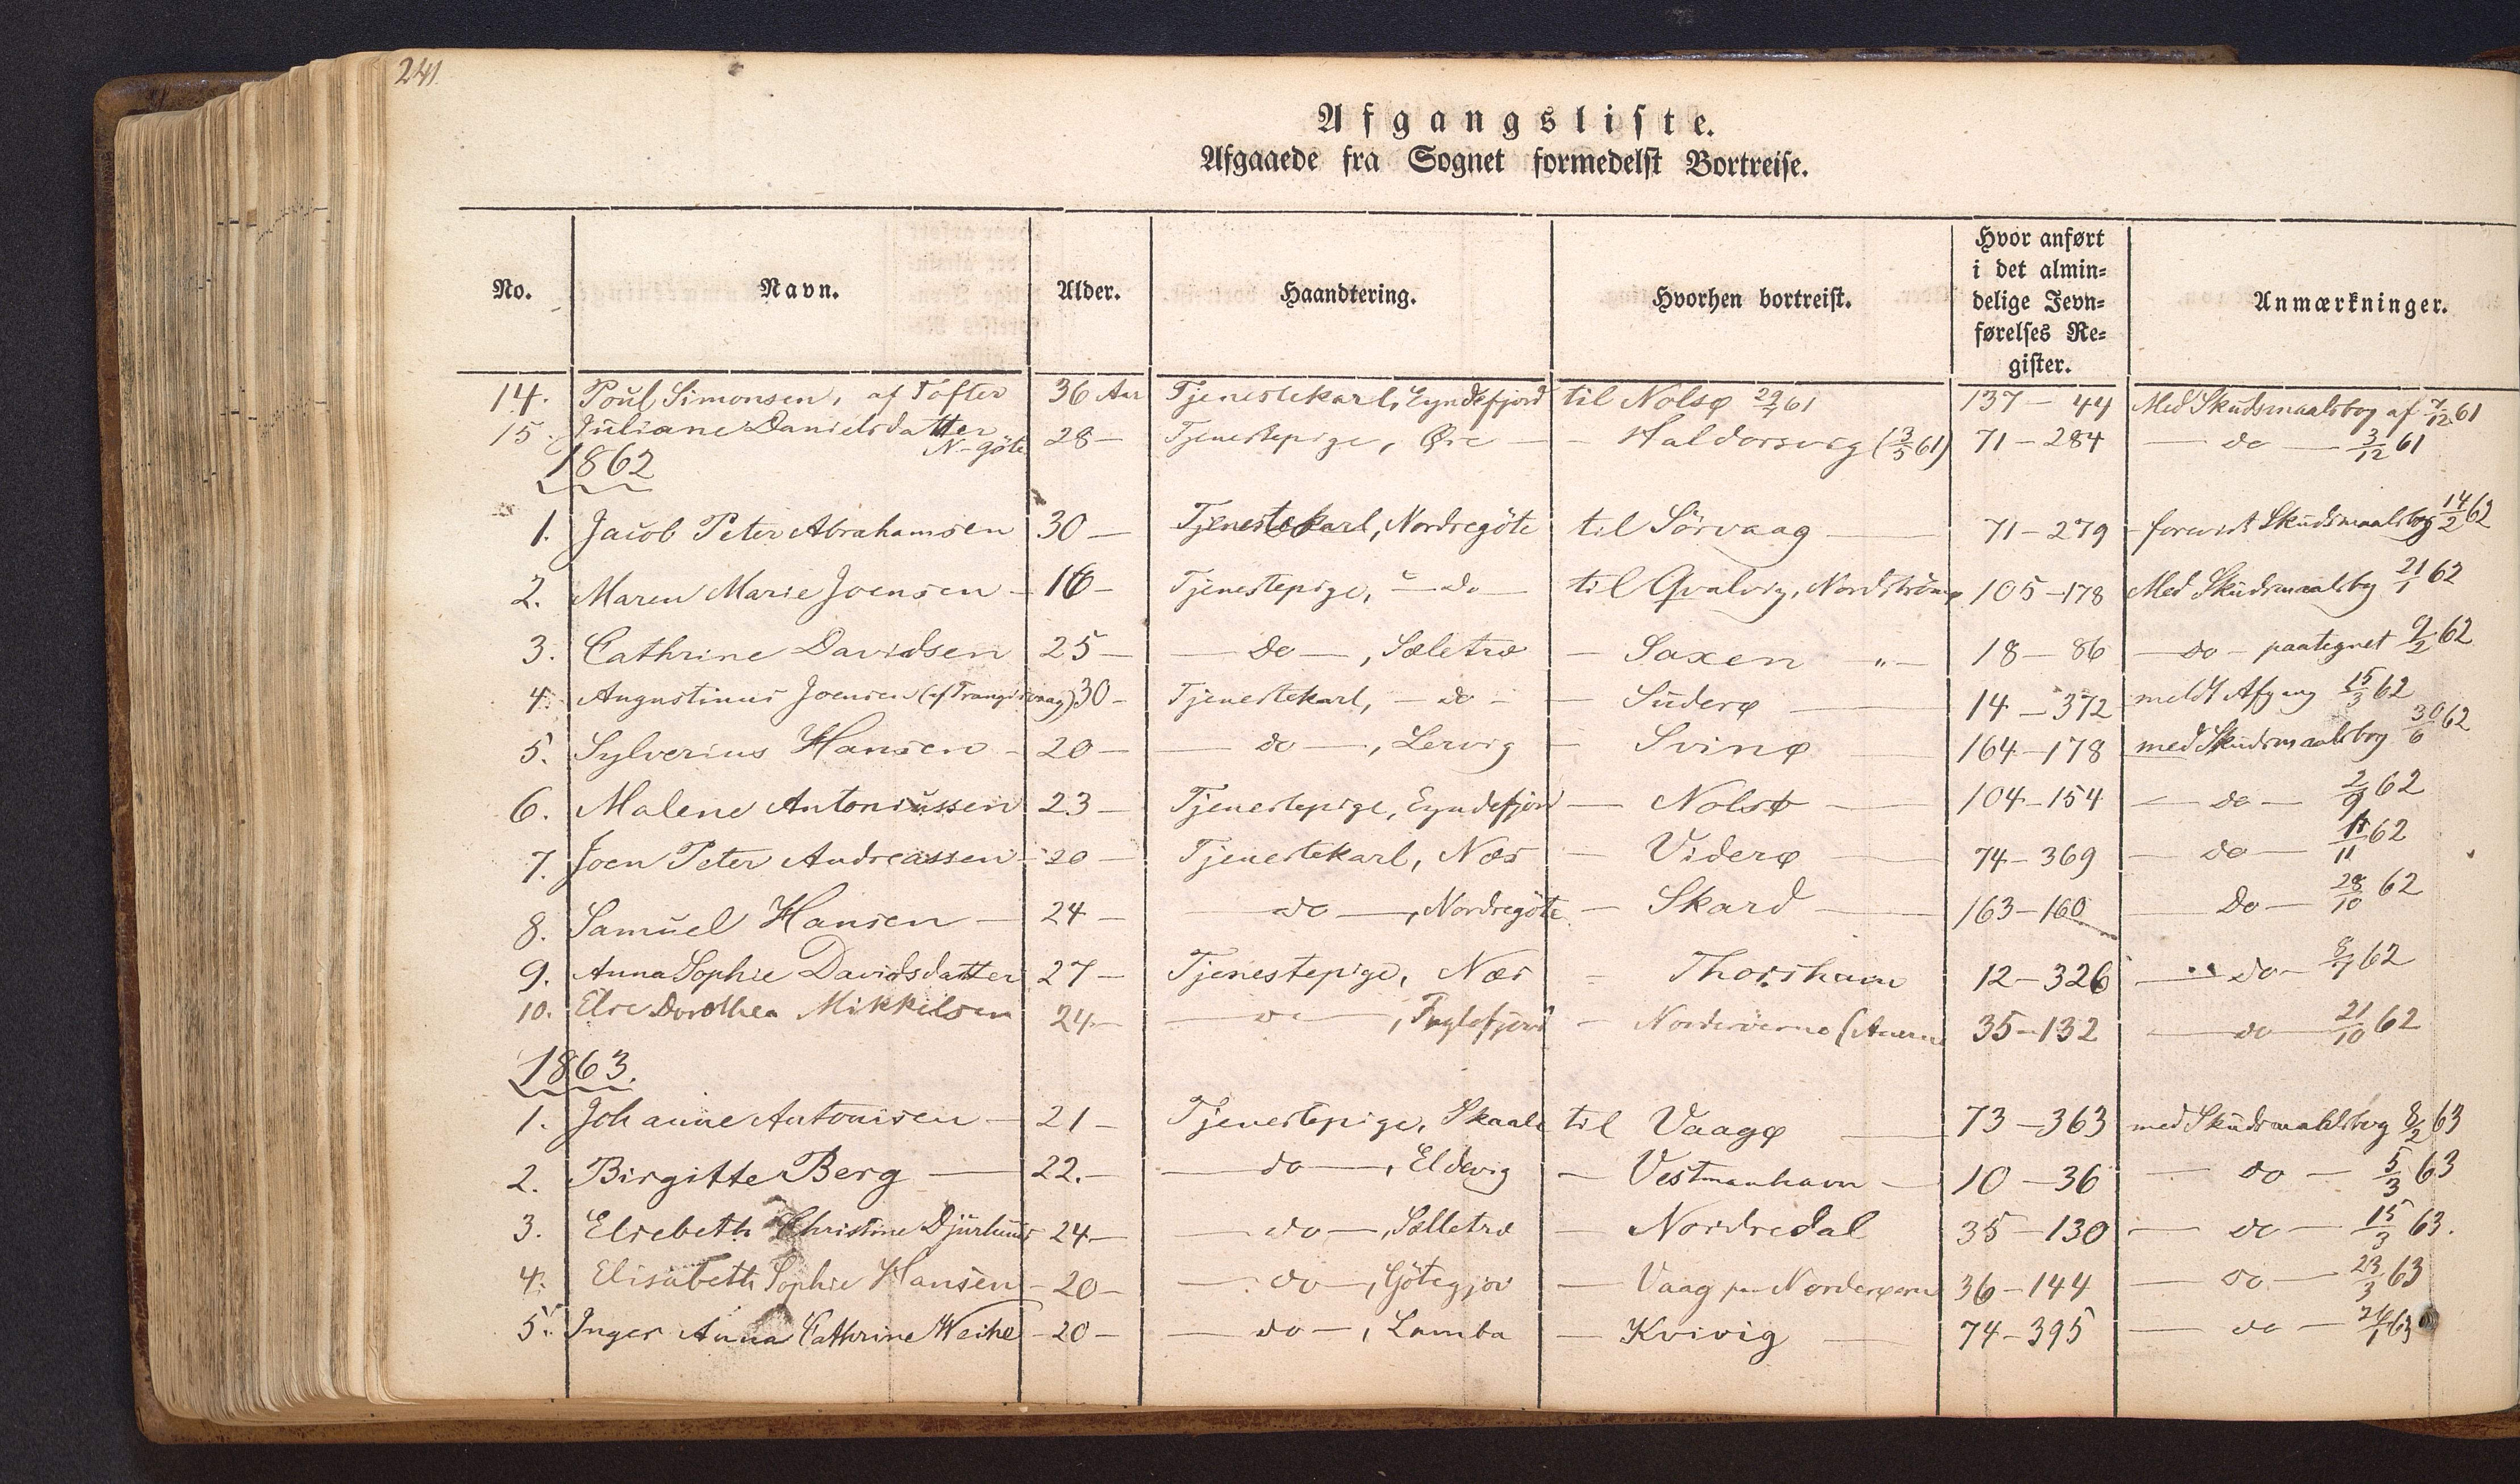 241.
Afgangsliste.
Afgaaede fra Sognet formedelst Bortreise.
No. Navn. Alder. Haandtering. Hvorhen bortreist. Hvor anført i det almin= delige Jevn= førelses Re= gister. Anmærkninger.
14. Poul Simonsen, af Tofter 36 Aar Tjenestekarl, Eyndefjord til Nolsø 29/7 61 137 — 44 Med Skudsmaalsbog af 7/12 61
15. Juliane Danielsdatter N-Göte 28 — Tjenestepige, Øre — - Haldorsvig (3/5 61) 71 - 284 — do — 3/12 61
1862
1. Jacob Peter Abrahamsen 30 — Tjenestekarl, Nordregöte til Sörvaag — 71 - 279 forevist Skudsmaalsbog 14/2 62
2. Maren Marie Joensen - 16 - Tjenestepige, — do — til Qvalvig, Nordströmø 105 - 178 Med Skudsmaalsbog 21/1 62
3. Cathrine Davidsen 25 — — do —, Sæletræ — Saxen " — 18 — 86 — do - paategnet 9/2 62
4. Augustinus Joensen (af Trangisvaag) 30 - Tjenestekarl, — do - — Suderø — 14 — 372 meldt Afgang 15/3 62
5. Sylverius Hansen - 20 — — do —, Lervig — Svinø — 164 - 178 med Skudsmaalsbog 30/6 62
6. Malene Antoniussen 23 — Tjenestepige, Eyndefjord — Nolsø — 104 - 154 — do — 2/9 62
7. Joen Peter Andreassen - 20 — Tjenestekarl, Næs — Viderø — 74 - 369 — do — 11/11 62
8. Samuel Hansen — 24 — — do —, Nordregöte — Skard — 163 - 160 — Do — 28/10 62
9. Anna Sophie Davidsdatter 27 — Tjenestepige, Næs - Thorshavn 12 - 326 — do - 8/7 62
10. Else Dorothea Mikkelsen 24 — — do —, Fuglefjord - Norderöerne ( 35 - 132 — do — 21/10 62
1863.
1. Johanne Antonisen — 21 — Tjenestepige, Skaale til Vaagø — 73 — 363 med Skudsmaalsbog 8/2 63
2. Birgitte Berg — 22. — — do —, Eldevig — Vestmanhavn — 10 — 36 — do — 5/3 63
3. Elsebeth Christine Djurhuus 24 — — do —, Sælletræ — Nordredal 35 — 130 — do — 15/3 63.
4. Elisabeth Sophie Hansen - 20 - — do —, Götegjov — Vaag paa Norderøerne 36 - 144 — do — 23/3 63
5. Inger Anna Cathrine Weihe - 20 — — do —, Lamba — Kvivig — 74 - 395 — do — 24/1 63